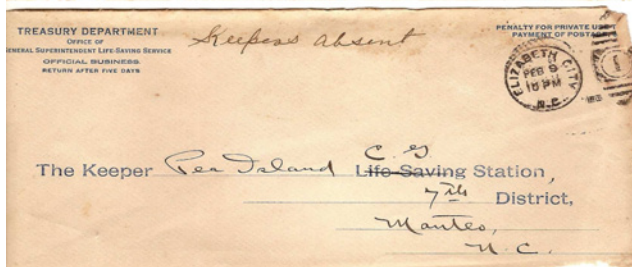 TREASURY DEPARTMENT
OFFICE OF
GENERAL SUPERINTENDENT LIFE-SAVING SERVICE
OFFICIAL BUSINESS.
RETURN AFTER FIVE DAYS
Keepers absent
PENALTY FOR PRIVATE USE
PAYMENT OF POSTAGE
ELIZABETH CITY
FEB 9
10 PM
N.C.
1
C. G
The Keeper Pea Island Life-Saving Station,
7th District,
Manteo,
N.C.